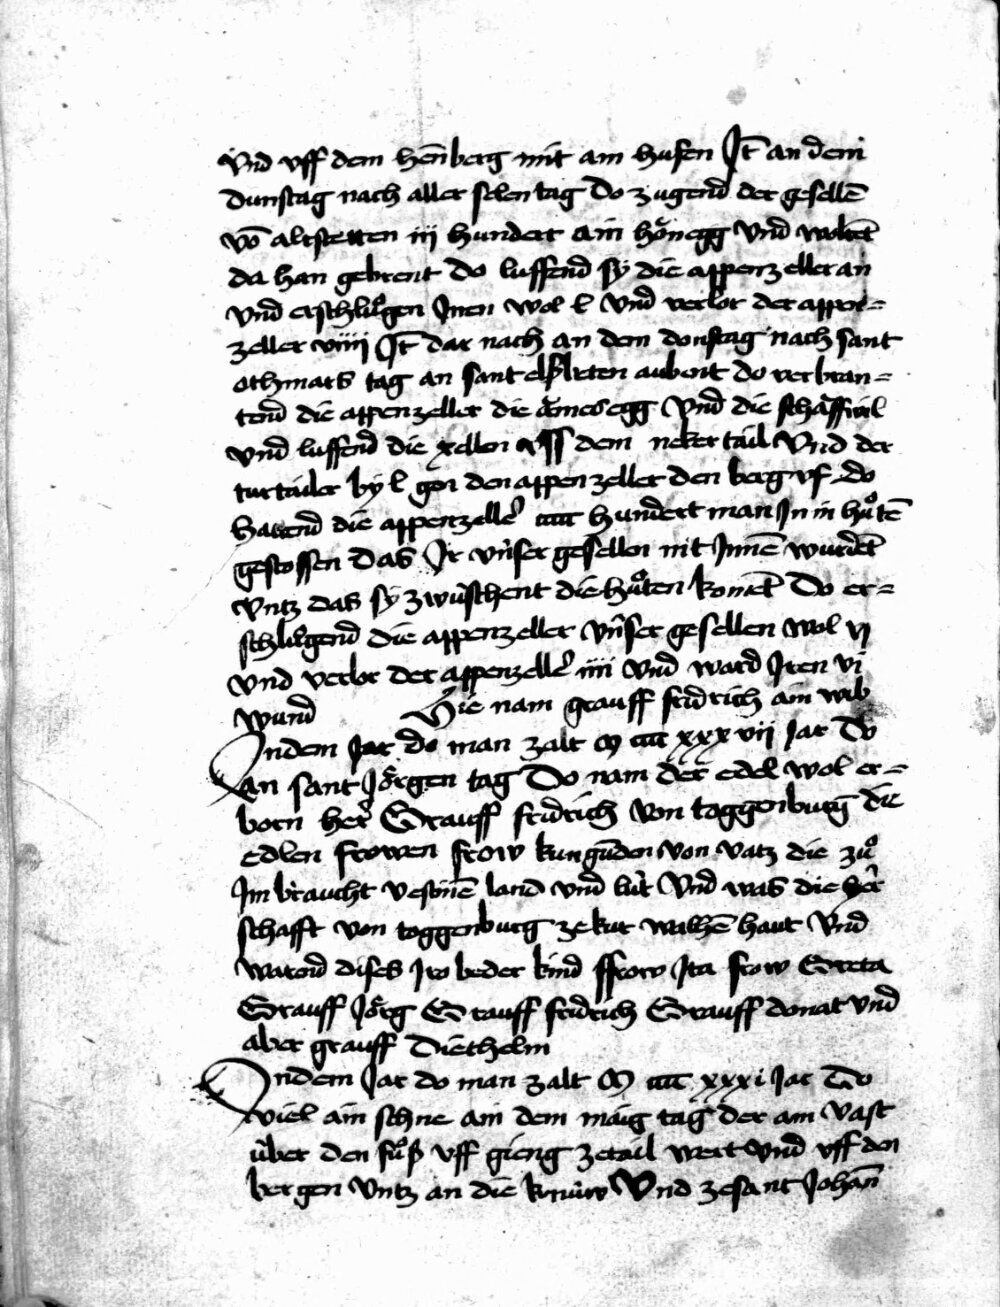 vnd vff dem henberg mit am husen It an dem
dunstag nach aller selen tag Do zugend der gesellē
vō altstetten iij hundert am hönegg vnd woltēt
da han gebrent Do luffend sy die appenzeller an
vnd erschlůgen Inen wol l vnd verlor der appen=
zeller viiij It dar nach an dem donstag nach sant
othmars tag an sant elsbeten aubent do verbran=
tend die appenzeller die ämesegg vnd die schäffwil
vnd luffend die gellen uss dem neker tail vnd der
turtailer by l gen den appenzeller den berg vf do
hattend die appenzeller cccc hundert man In in hůtē
gestossen Das Ir vnser gesellen nit Innē wurdēt
vntz das sy zwüschent die hůten komēt Do er=
schlůgend die appenzeller vnser gesellen wol vj
vnd verlor der appenzeller iiij vnd ward Iren vi
wund Hie nam grauff fridrich ain wib
Indem Jar do man zalt M cccc xxxvii Jar Do
an sant Jörgen tag Do nam der edel wol er=
born her Grauff fridrich von toggenburg die
edlen frowen frow kungůden von vatz die zů
Im braucht vestinē land vnd lüt vnd was die her
schafft von toggenburg ze kur walhē haut vnd
warend dises Iro beder kind ffrow Ita frow Greta
Grauff Jörg Grauff fridrich Grauff donat vnd
aber grauff Diethelm
Indem Jar do man zalt M cccc xxxi Jar Do
viel ain schne am dem maig tag der am vast
über den fůß vff gieng ze tail wert vnd vff den
bergen vntz an die knüw vnd ze sant Johan